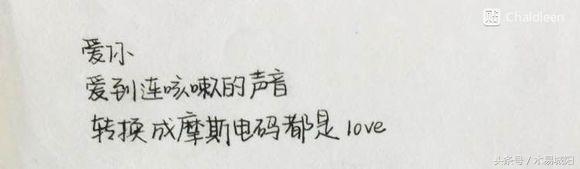 贴 Chaldleen
爱你
爱到连咳嗽的声音
转换成摩斯电码都是love
头条号 / 木易城阳